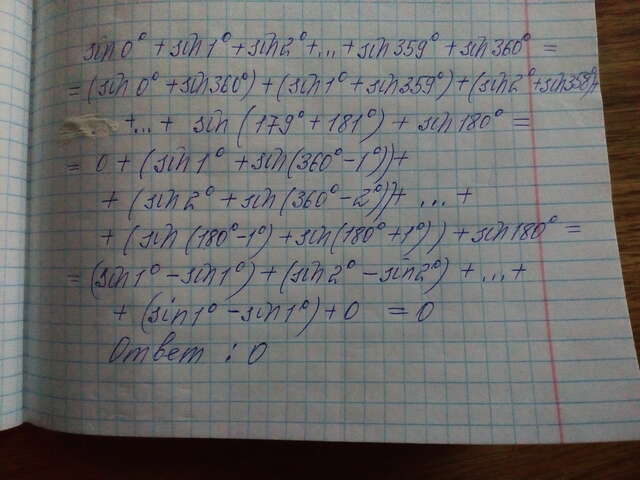 sin0° + sin1° + sin2° + ... + sin359° + sin360° =
= (sin0° + sin360°) + (sin1° + sin359°) + (sin2° + sin358°)+
+...+ sin(179° + 181°) + sin180° =
= 0 + (sin1° + sin(360°-1°))+
+ (sin2° + sin(360°-2°))+ ... +
+ (sin(180°-1°) + sin(180°+1°)) + sin180° =
= (sin1° - sin1°) + (sin2° - sin2°) + ... +
+ (sin1° - sin1°) + 0 = 0
Ответ : 0